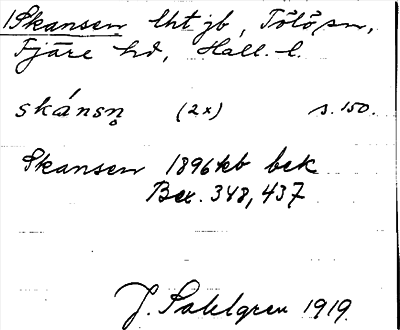 1Skansen lht jb, Tölö sn,
Fjäre hd, Hall. l.
skánsn̥ (2x) s. 150.
Skansen 1896 kb bek
Bex. 348, 437
J. Sahlgren 1919.